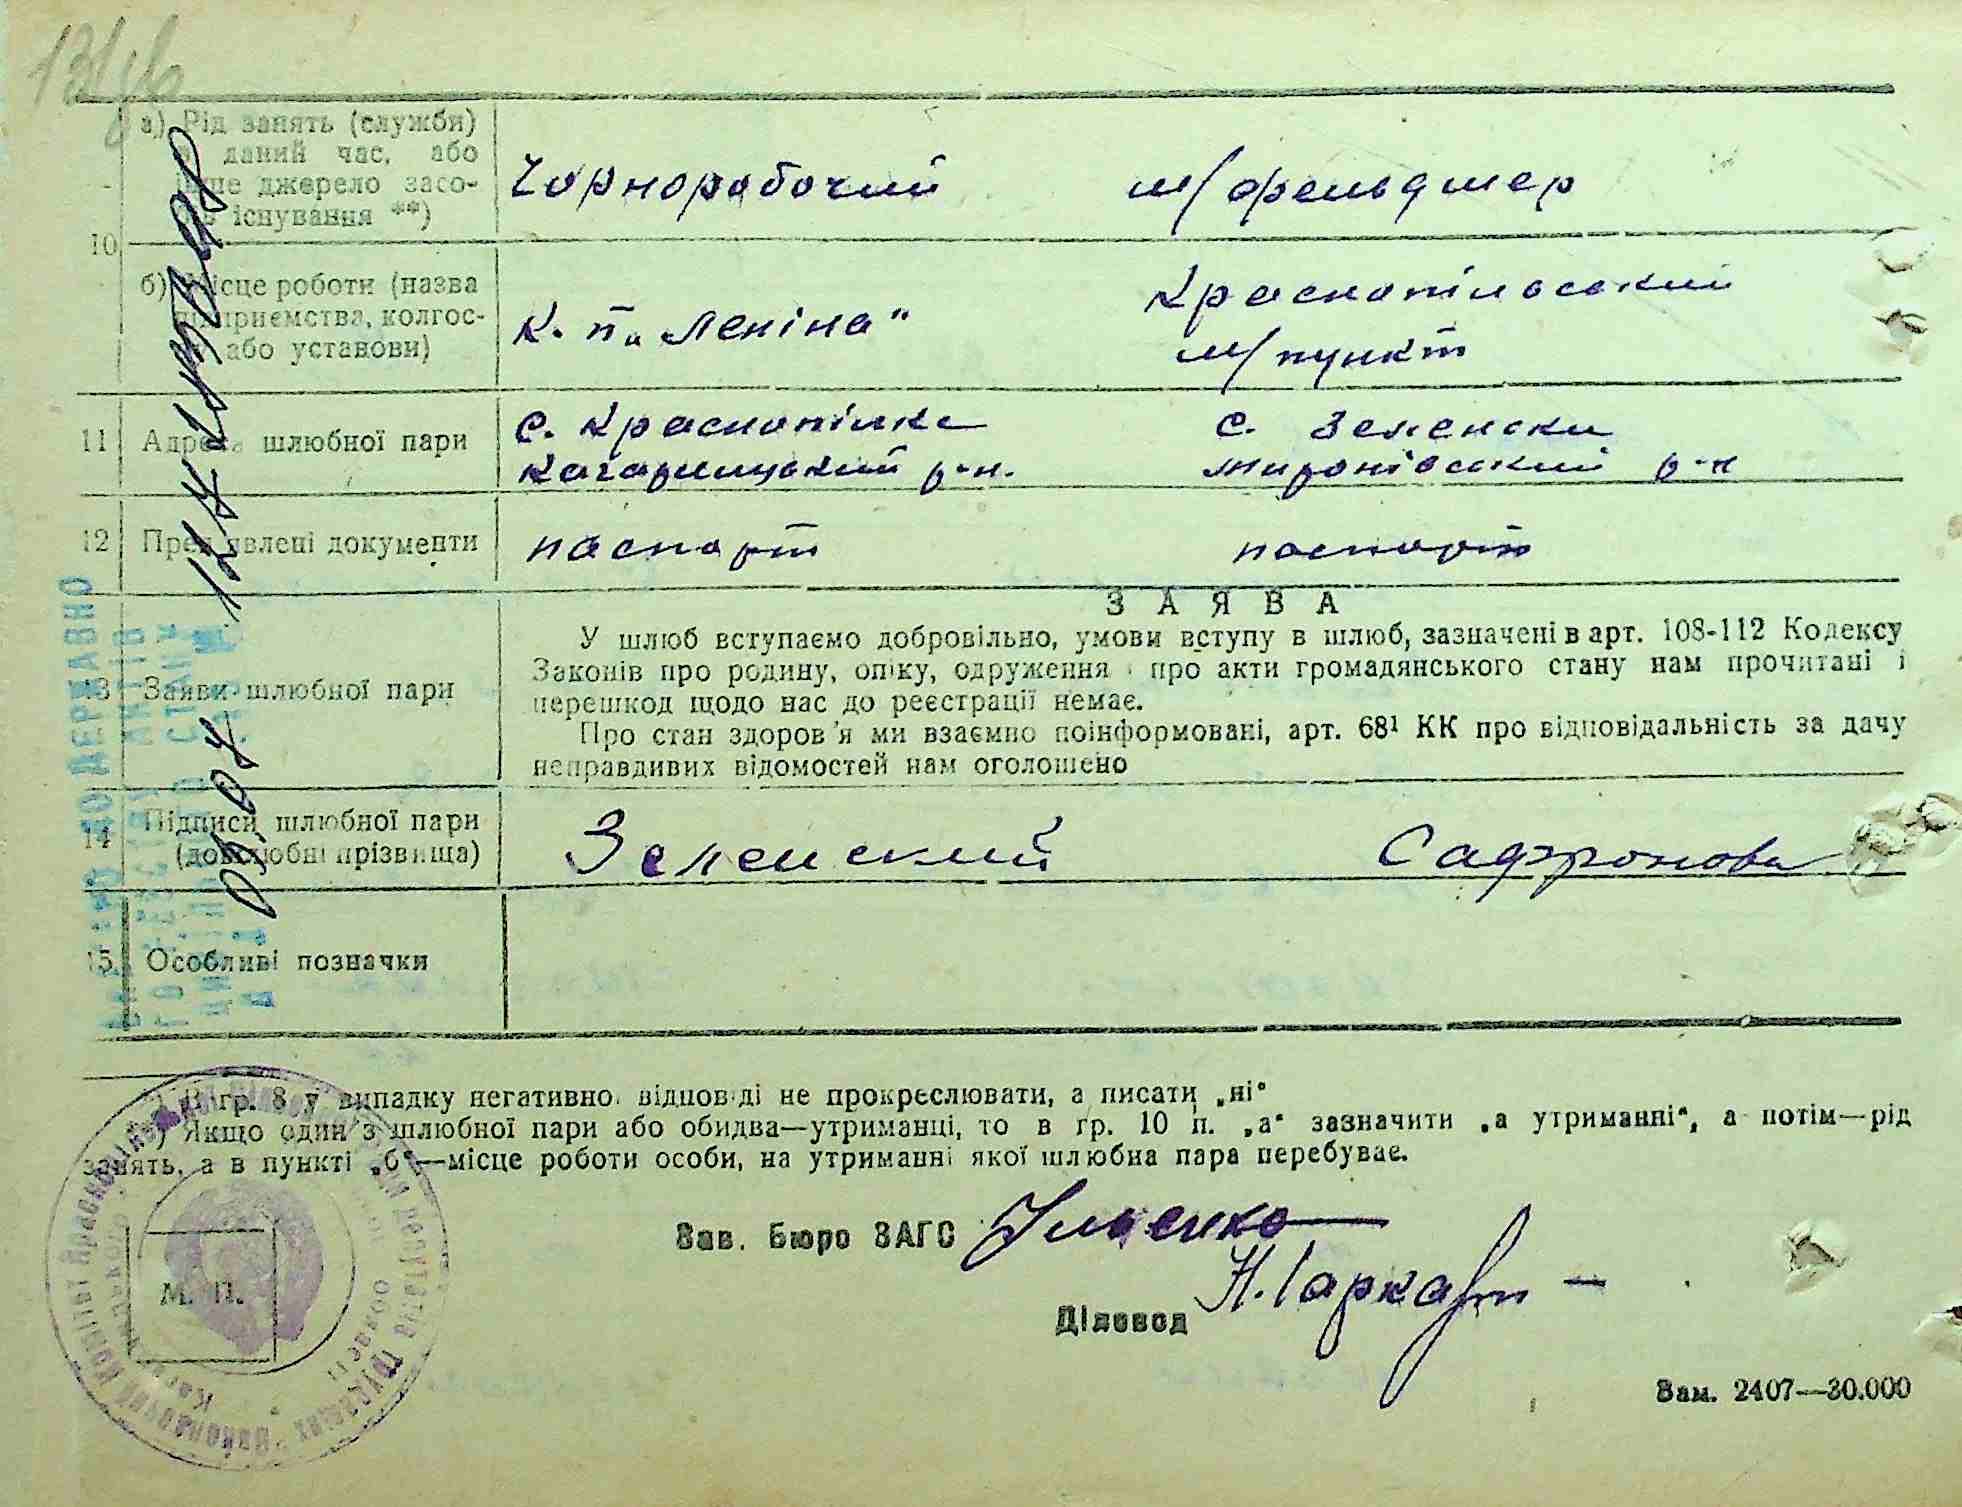 а) Рід занять (служби)
в даний час, або
інше джерело засо-
бів існування **)
Чорнорабочий
м/фельдшер
10
б) Місце роботи (назва
підприємства, колгос-
пу або установи)
К. п. „Леніна"
Краснопільський
м/пункт
11 Адреса шлюбної пари
с. Краснопілка
Кагарлицький р-н.
с. Зеленьки
Миронівський р-н
12 Пред'явлені документи
паспорт
паспорт
ЗАЯВА
13 Заяви шлюбної пари
У шлюб вступаємо добровільно, умови вступу в шлюб, зазначені в арт. 108-112 Кодексу
Законів про родину, опіку, одруження і про акти громадянського стану нам прочитані і
перешкод щодо нас до реєстрації немає.
Про стан здоров'я ми взаємно поінформовані, арт. 68¹ КК про відповідальність за дачу
неправдивих відомостей нам оголошено
14 Підписи шлюбної пари
(дошлюбні прізвища)
Зеленский
Сафронова
15 Особливі позначки
*) В гр. 8 у випадку негативної відповіді не прокреслювати, а писати „ні"
**) Якщо один з шлюбної пари або обидва—утриманці, то в гр. 10 п. „а" зазначити „а утриманні", а потім—рід
занять, а в пункті „б"—місце роботи особи, на утриманні якої шлюбна пара перебуває.
Зав. Бюро ЗАГС
Діловод
М. П.
Зам. 2407—30.000